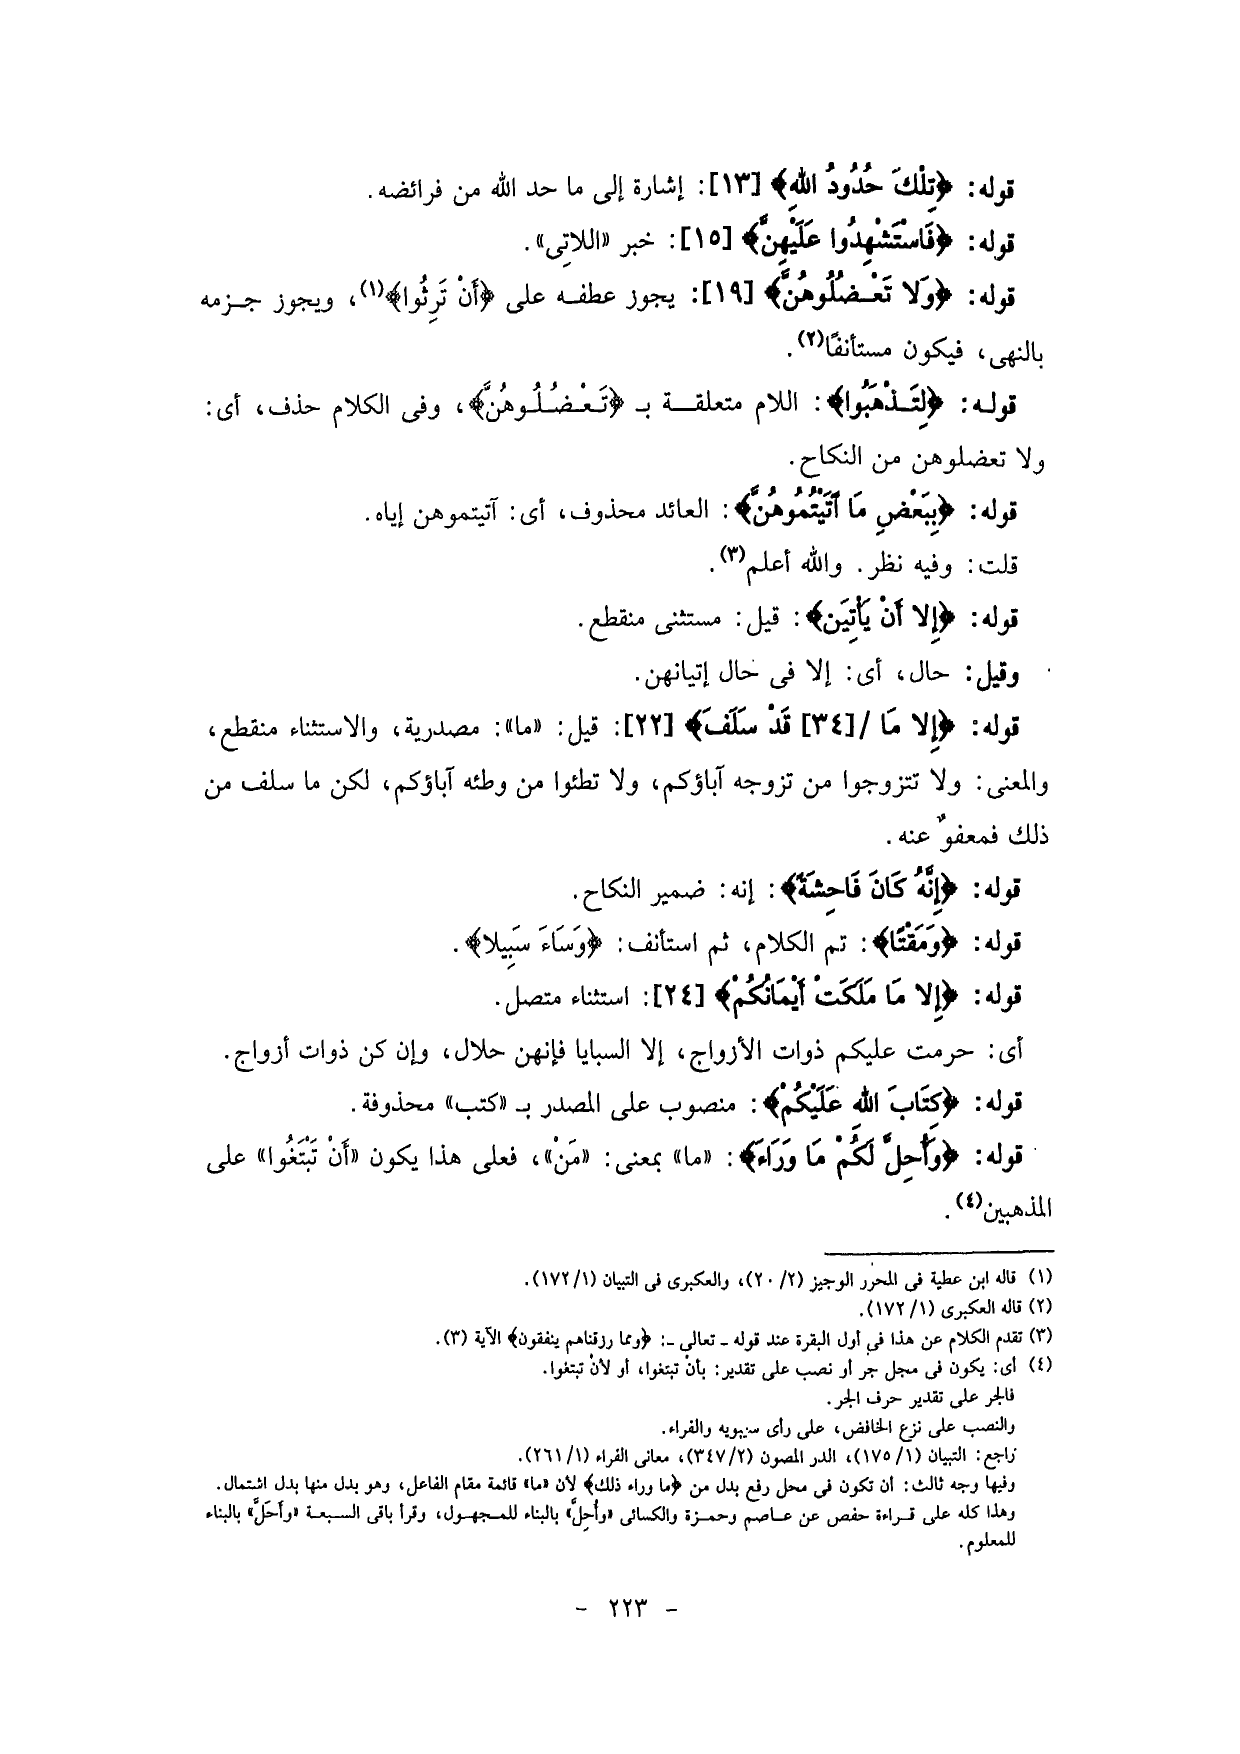 قوله: ﴿تِلْكَ حُدُودُ اللهِ﴾ [١٣]: إشارة إلى ما حد الله من فرائضه.
قوله: ﴿فَاسْتَشْهِدُوا عَلَيْهِنَّ﴾ [١٥]: خبر «اللاتِى».
قوله: ﴿وَلا تَعْضُلُوهُنَّ﴾ [١٩]: يجوز عطفه على ﴿أَنْ تَرِثُوا﴾(١)، ويجوز جزمه
بالنهى، فيكون مستأنفًا(٢).
قوله: ﴿لِتَذْهَبُوا﴾: اللام متعلقة بـ ﴿تَعْضُلُوهُنَّ﴾، وفى الكلام حذف، أى:
ولا تعضلوهن من النكاح.
قوله: ﴿بِبَعْضِ مَا آتَيْتُمُوهُنَّ﴾: العائد محذوف، أى: آتيتموهن إياه.
قلت: وفيه نظر. والله أعلم(٣).
قوله: ﴿إِلا أَنْ يَأْتِينَ﴾: قيل: مستثنى منقطع.
وقيل: حال، أى: إلا فى حال إتيانهن.
قوله: ﴿إِلا مَا /[٣٤] قَدْ سَلَفَ﴾ [٢٢]: قيل: «ما»: مصدرية، والاستثناء منقطع،
والمعنى: ولا تتزوجوا من تزوجه آباؤكم، ولا تطئوا من وطئه آباؤكم، لكن ما سلف من
ذلك فمعفوٌ عنه.
قوله: ﴿إِنَّهُ كَانَ فَاحِشَةً﴾: إنه: ضمير النكاح.
قوله: ﴿وَمَقْتًا﴾: تم الكلام، ثم استأنف: ﴿وَسَاءَ سَبِيلا﴾.
قوله: ﴿إِلا مَا مَلَكَتْ أَيْمَانُكُمْ﴾ [٢٤]: استثناء متصل.
أى: حرمت عليكم ذوات الأزواج، إلا السبايا فإنهن حلال، وإن كن ذوات أزواج.
قوله: ﴿كِتَابَ اللهِ عَلَيْكُمْ﴾: منصوب على المصدر بـ «كتب» محذوفة.
قوله: ﴿وَأُحِلَّ لَكُمْ مَا وَرَاءَ﴾: «ما» بمعنى: «مَنْ»، فعلى هذا يكون «أَنْ تَبْتَغُوا» على
المذهبين(٤).
(١) قاله ابن عطية فى المحرر الوجيز (٢/ ٢٠)، والعكبرى فى التبيان (١/ ١٧٢).
(٢) قاله العكبرى (١/ ١٧٢).
(٣) تقدم الكلام عن هذا فى أول البقرة عند قوله ـ تعالى ـ: ﴿ومما رزقناهم ينفقون﴾ الآية (٣).
(٤) أى: يكون فى محل جر أو نصب على تقدير: بأنْ تبتغوا، أو لأنْ تبتغوا.
فالجر على تقدير حرف الجر.
والنصب على نزع الخافض، على رأى سيبويه والفراء.
راجع: التبيان (١/ ١٧٥)، الدر المصون (٢/ ٣٤٧)، معانى الفراء (١/ ٢٦١).
وفيها وجه ثالث: أن تكون فى محل رفع بدل من ﴿ما وراء ذلك﴾ لأن «ما» قائمة مقام الفاعل، وهو بدل منها بدل اشتمال.
وهذا كله على قراءة حفص عن عاصم وحمزة والكسائى «وأُحِلَّ» بالبناء للمجهول، وقرأ باقى السبعة «وأَحَلَّ» بالبناء
للمعلوم.
- ٢٢٣ -